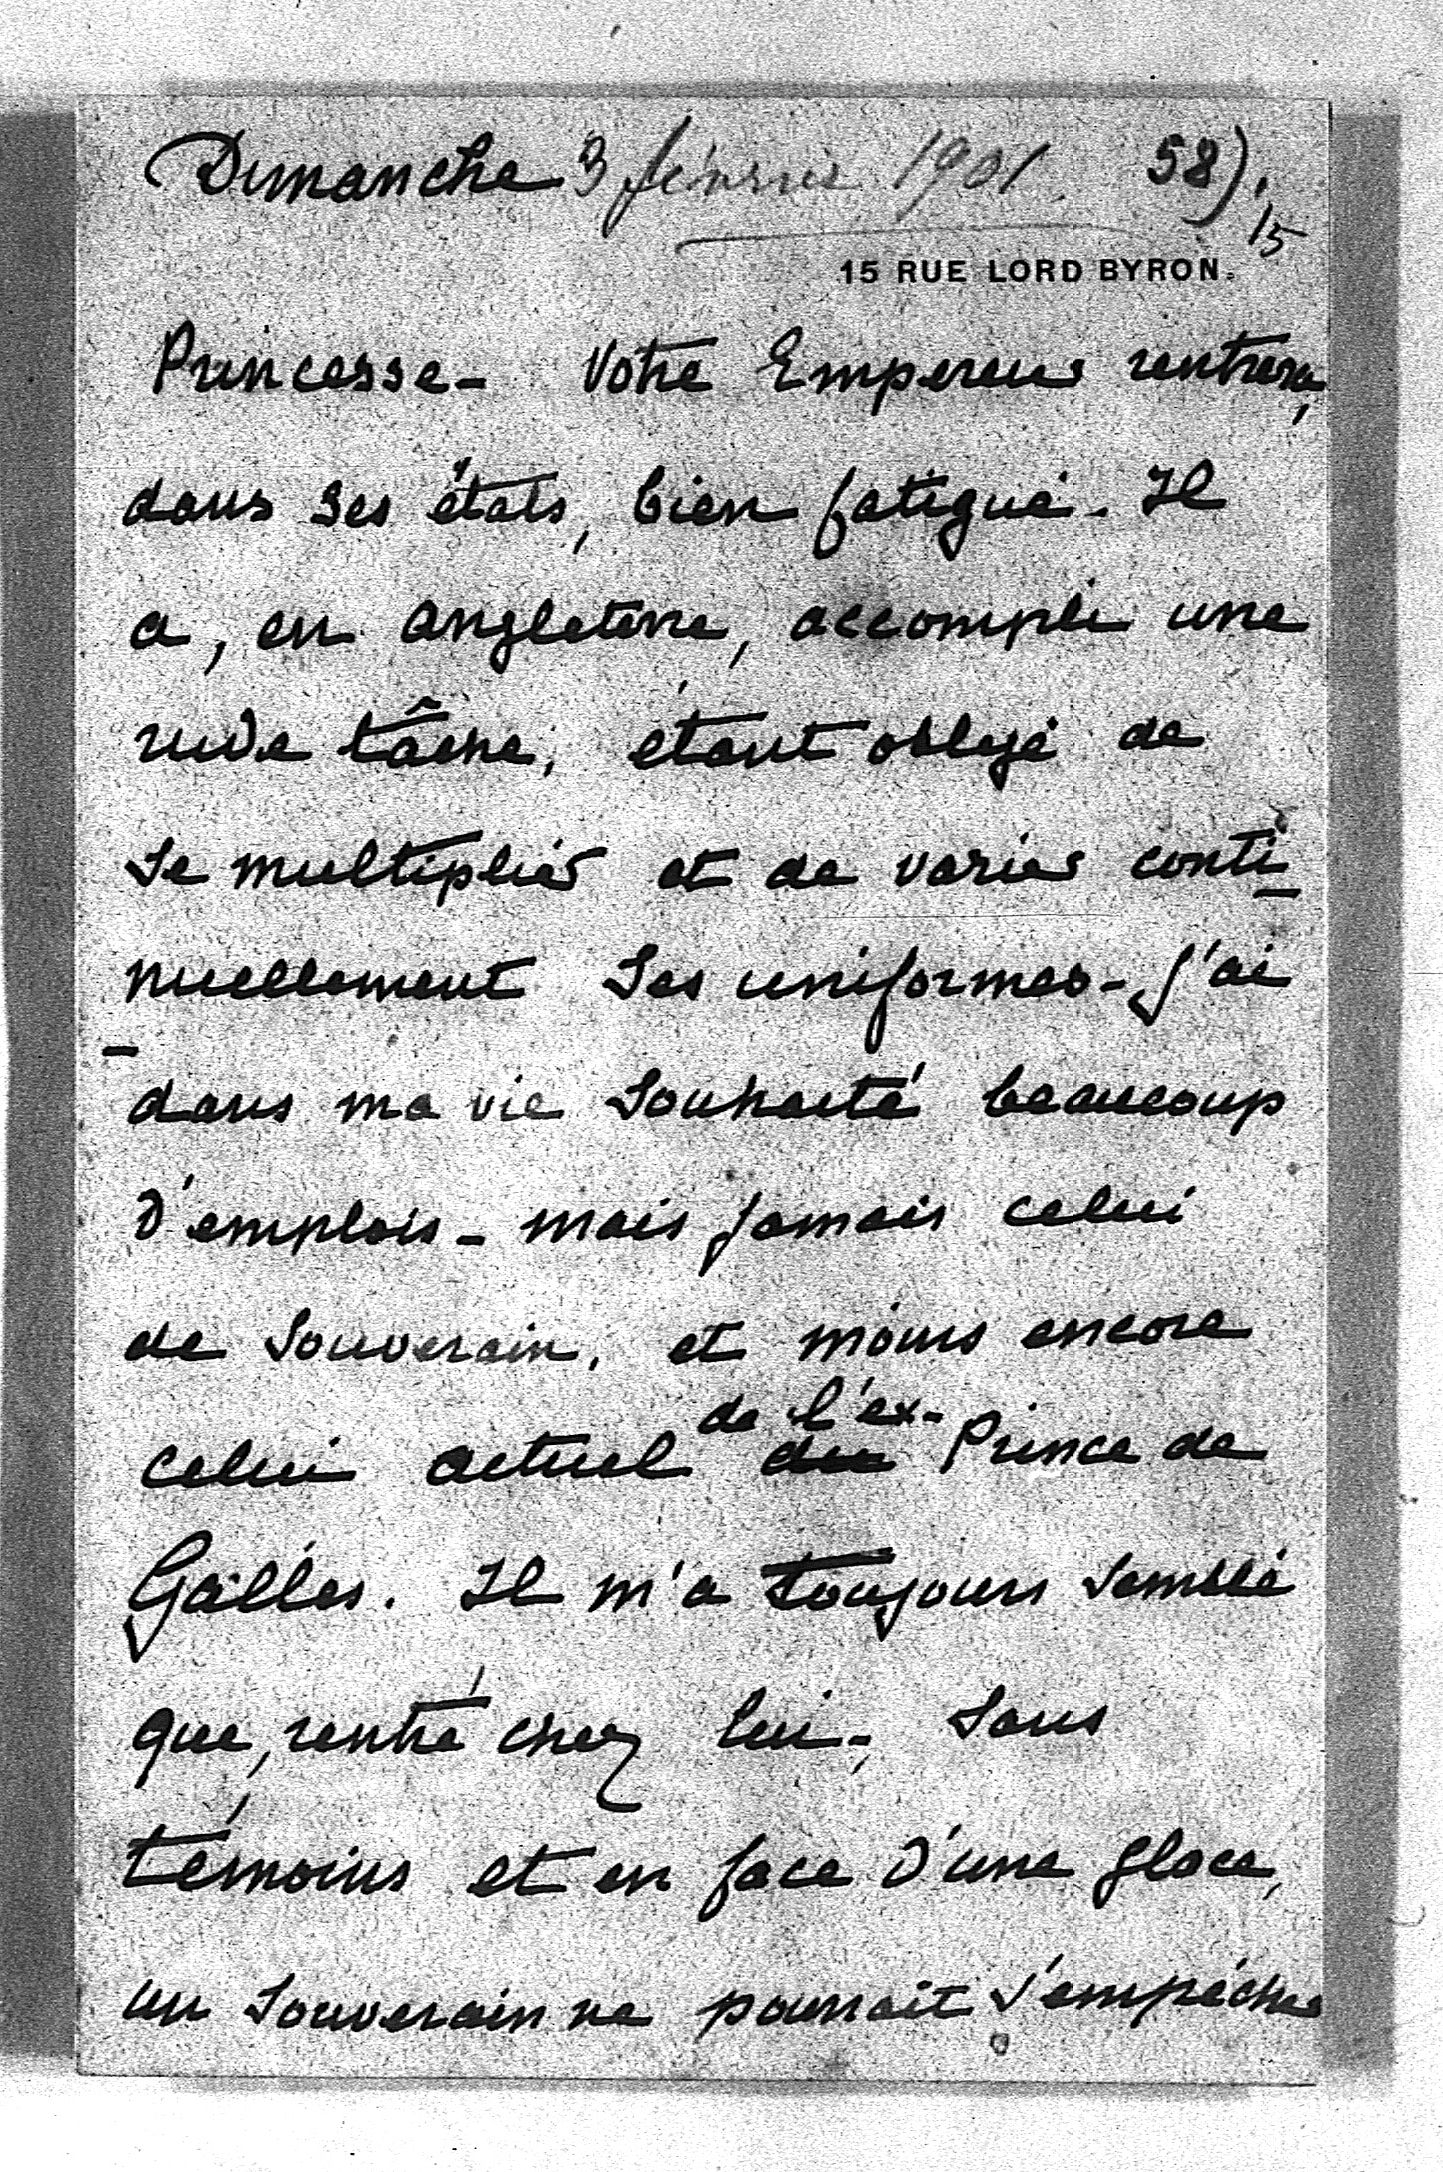 Dimanche 3 février 1901 58)
15
15 RUE LORD BYRON.
Princesse - Votre Empereur rentrera,
dans ses états, bien fatigué. Il
a, en angleterre, accompli une
rude tâche, étant obligé de
se multiplier et de varier conti-
nuellement ses uniformes - J'ai
dans ma vie souhaité beaucoup
d'emplois - mais jamais celui
de Souverain, et moins encore
de l'ex-
celui actuel du Prince de
Galles. Il m'a toujours semblé
que, rentré chez lui, sans
témoins et en face d'une glace,
un Souverain ne pourrait s'empêcher